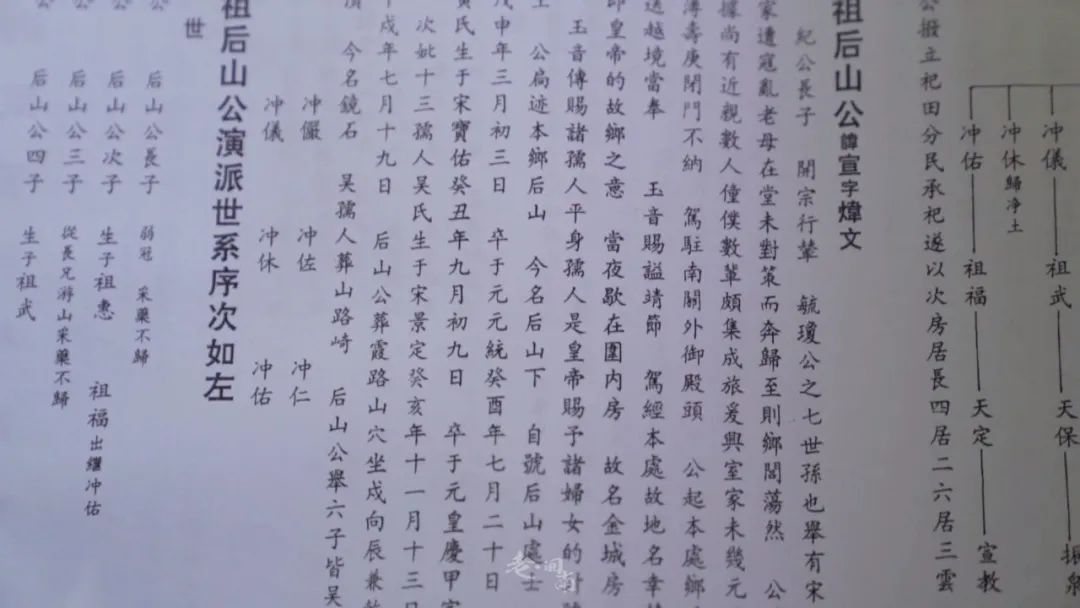 冲儀 祖武 天保 振
冲休歸净土
冲佑 祖福 天定 宣教
公撥主祀田分民承祀遂以次房居長四居二六居三雲
祖后山公諱宣字煒文
紀公長子 開宗行輩 毓瓊公之七世孫也舉有宋
家遭寇亂老母在堂未對策而奔歸至則鄉閭蕩然 公
據尚有近親數人僮僕數輩頗集成旅爰興室家未幾元
薄壽庚閉門不納 駕駐南關外御殿頭 公起本處鄉
送越境當奉 玉音賜謚靖節 駕經本處故地名幸
即皇帝的故鄉之意 當夜歇在圍内房 故名金城房
玉音傳賜諸孺人平身孺人是皇帝賜予諸婦女的
公扁迹本鄉后山 今名后山下 自號后山處士
戊申年三月初三日 卒于元元統癸酉年七月二十日
黄氏生于宋寶佑癸丑年九月初九日 卒于元皇慶甲
次妣十三孺人吴氏生于宋景定癸亥年十一月十三日
戌年七月十九日 后山公葬霞路山穴坐戌向辰兼
今名鏡石 吴孺人葬山路崎 后山公舉六子皆吴
冲儼 冲佐 冲仁
冲儀 冲休 冲佑
祖后山公演派世系序次如左
世
后山公長子 弱冠 采藥不歸
后山公次子 生子祖惠 祖福出繼冲佑
后山公三子 從長兄游山采藥不歸
后山公四子 生子祖武
老·闽南